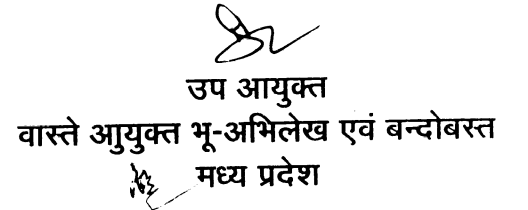 उप आयुक्त
वास्ते आुयुक्त भू-अभिलेख एवं बन्दोबस्त
मध्य प्रदेश